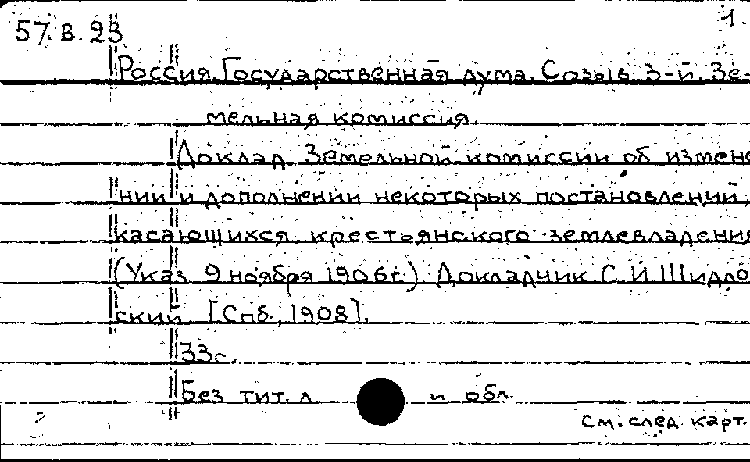 57.В.23
1.
Россия. Государственная дума. Созыв 3-й. Зе-
мельная комиссия.
Доклад Земельной комиссии об измене
нии и дополнении некоторых постановлений,
касающихся крестьянского землевладения
(Указ 9 ноября 1906 г.) Докладчик С. И Шидло
ский [Спб., 1908].
33 с.
Без тит. л. и обл.
См. след. карт.